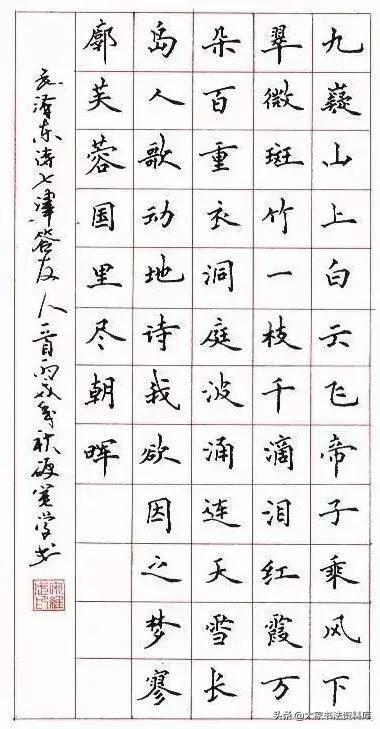 九嶷山上白云飞帝子乘风下
翠微斑竹一枝千滴泪红霞万
朵百重衣洞庭波涌连天雪长
岛人歌动地诗我欲因之梦寥
廓芙蓉国里尽朝晖
毛泽东诗七律答友人一首丙戌年秋学书
头条 @大家书法资料库